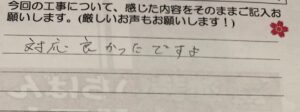 今回の工事について、感じた内容をそのままご記入お
願いします。(厳しいお声もお願いします！)
対応良かったですよ